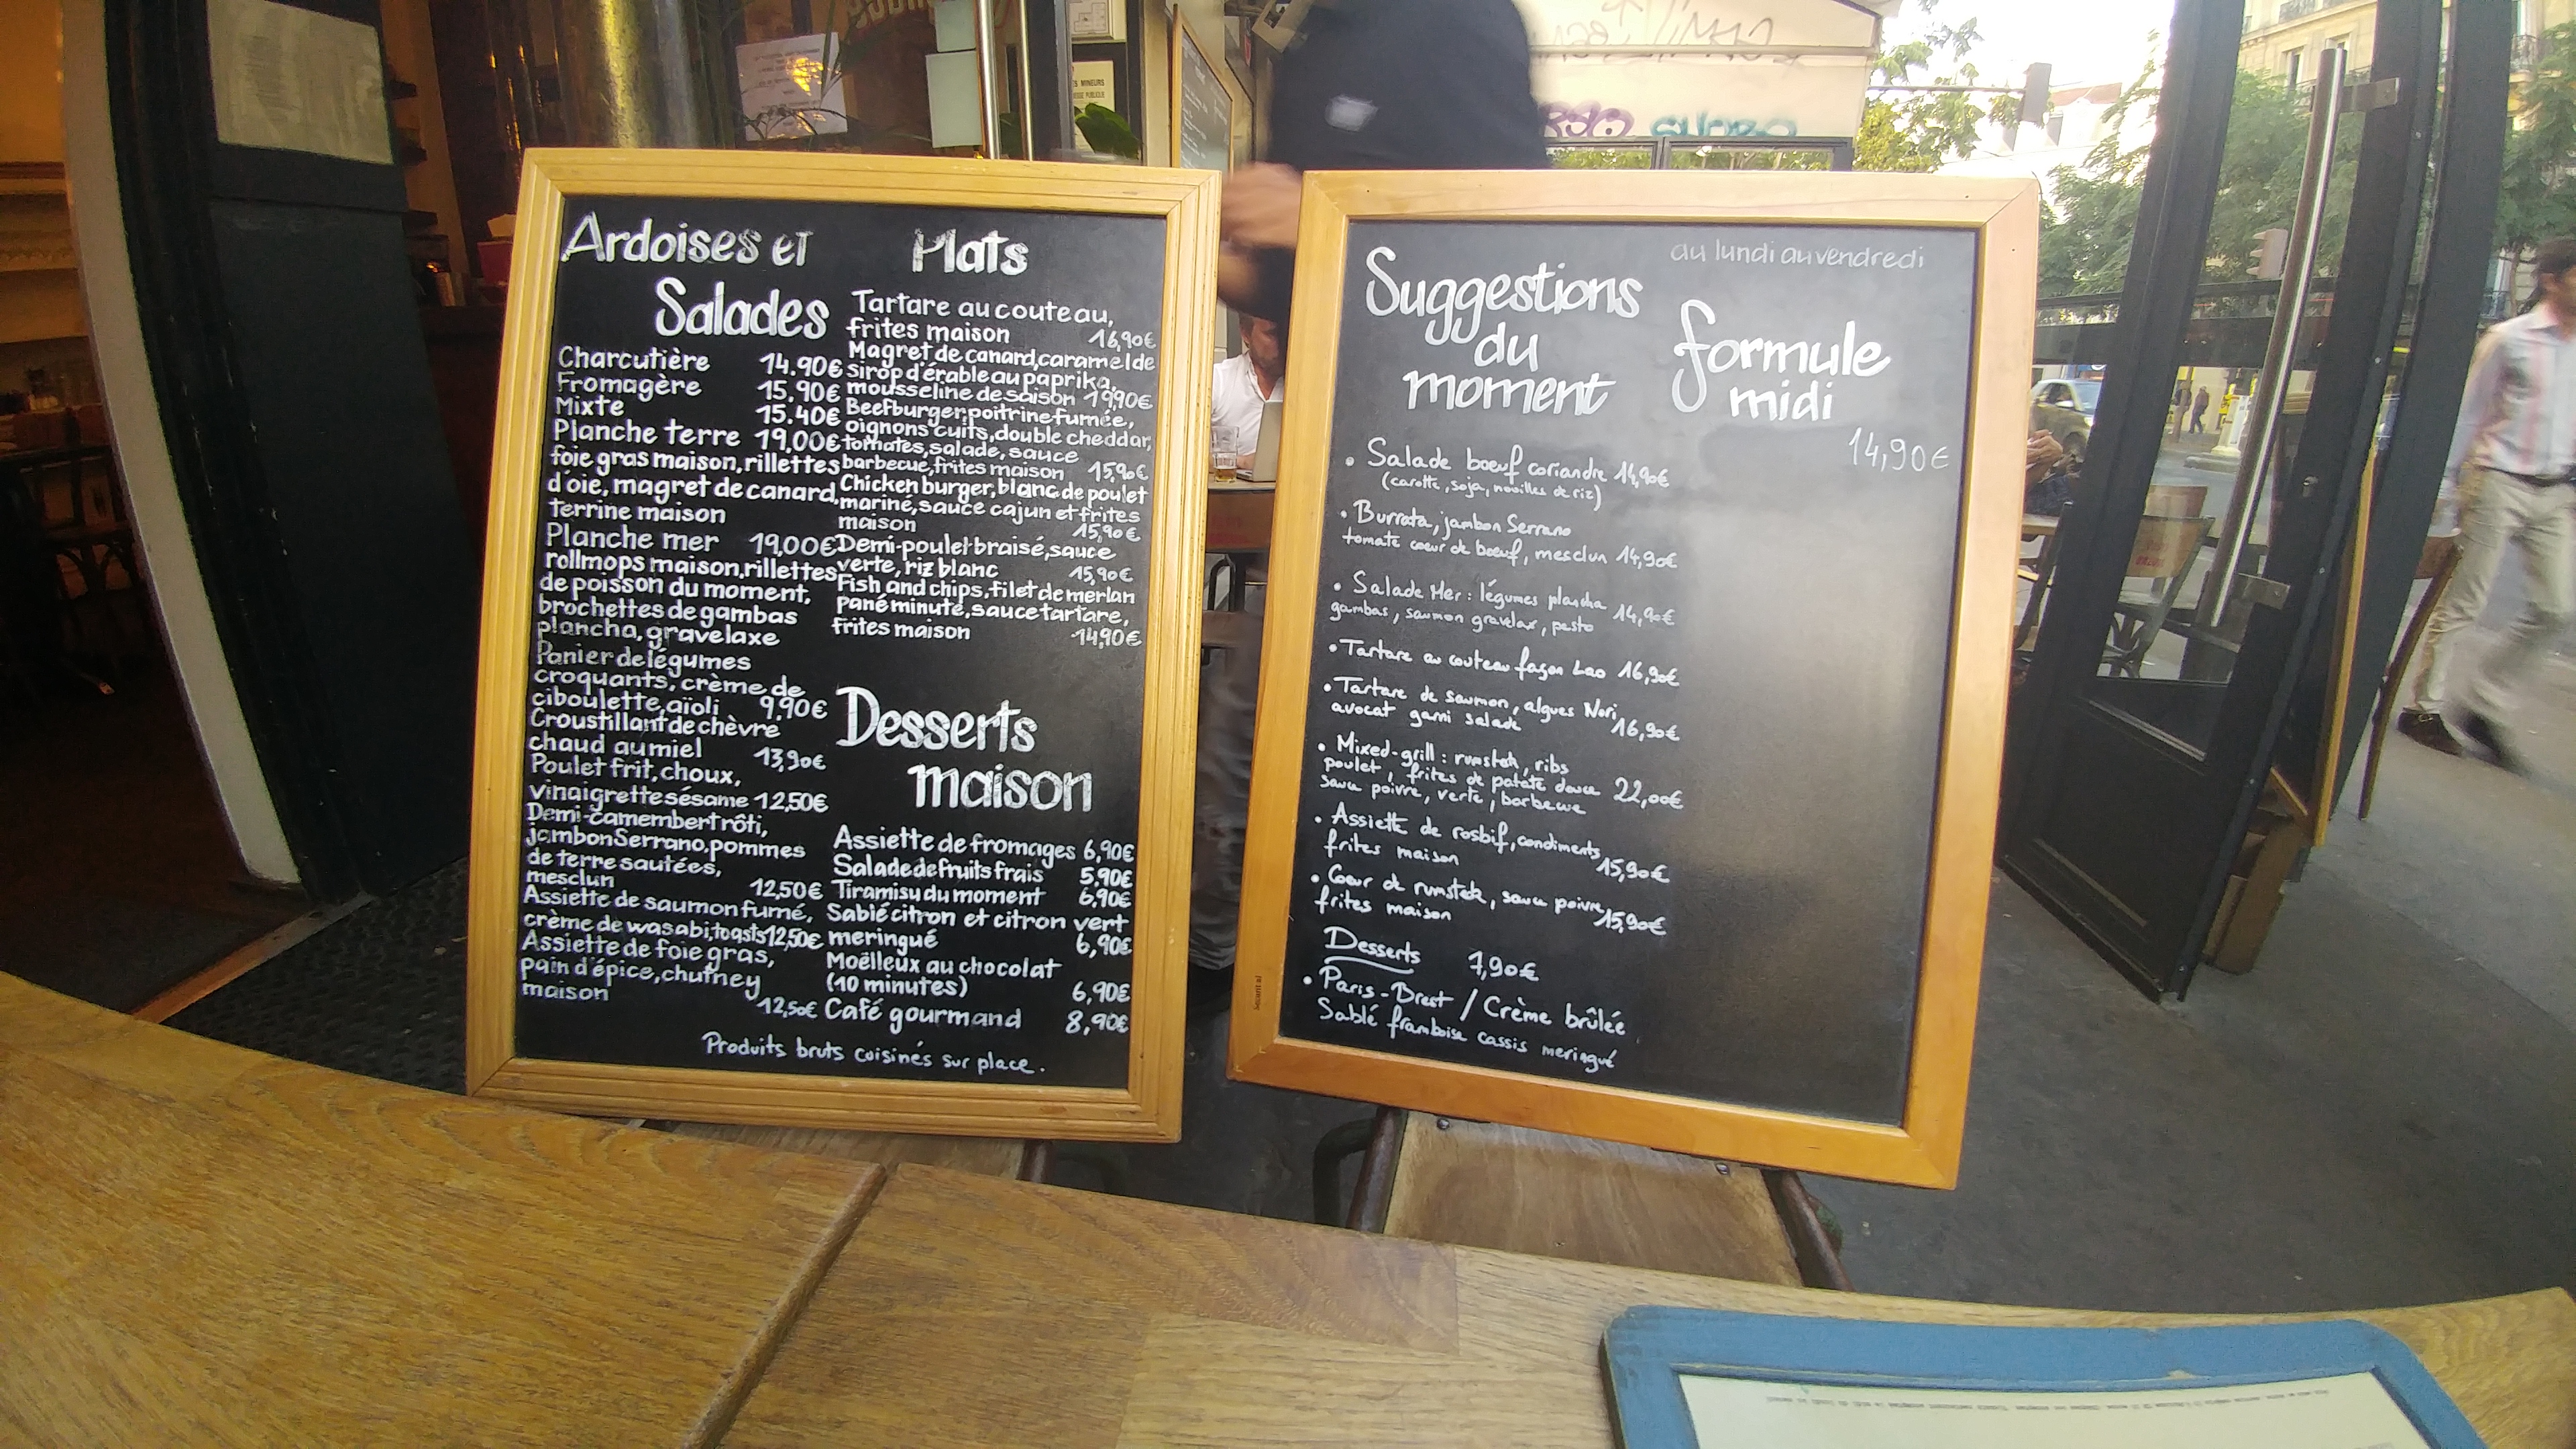 Ardoises et
Salades
Charcutière 14.90€
Fromagère 15,90€
Mixte 15.40€
Planche terre 19,00€
foie gras maison, rillettes
d'oie, magret de canard,
terrine maison
Planche mer 19,00€
rollmops maison, rillettes
de poisson du moment,
brochettes de gambas
plancha, gravelaxe
Panier de légumes
croquants, crème de
ciboulette, aïoli 9,90€
Croustillant de chèvre
chaud au miel 13,90€
Poulet frit, choux,
vinaigrette sésame 12,50€
Demi-camembert rôti,
jambon Serrano, pommes
de terre sautées,
mesclun 12,50€
Assiette de saumon fumé,
crème de wasabi, toasts 12,50€
Assiette de foie gras,
pain d'épice, chutney
maison 12,50€
Plats
Tartare au couteau,
frites maison 16,90€
Magret de canard, caramel de
sirop d'érable au paprika,
mousseline de saison 19,90€
Beefburger, poitrine fumée,
oignons cuits, double cheddar,
tomates, salade, sauce
barbecue, frites maison 15,90€
Chicken burger, blanc de poulet
mariné, sauce cajun et frites
maison 15,90€
Demi-poulet braisé, sauce
verte, riz blanc 15,90€
Fish and chips, filet de merlan
pané minute, sauce tartare,
frites maison 14,90€
Desserts
maison
Assiette de fromages 6,90€
Salade de fruits frais 5,90€
Tiramisu du moment 6,90€
Sablé citron et citron vert
meringué 6,90€
Moëlleux au chocolat
(10 minutes) 6,90€
Café gourmand 8,90€
Produits bruts cuisinés sur place.
Suggestions
du
moment
• Salade boeuf coriandre 14,90€
(carotte, soja, nouilles de riz)
• Burrata, jambon Serrano
tomate coeur de boeuf, mesclun 14,90€
• Salade Mer : légumes plancha
gambas, saumon gravelax, pesto 14,90€
• Tartare au couteau façon Lao 16,90€
• Tartare de saumon, algues Nori,
avocat garni salade 16,90€
• Mixed-grill : rumsteck, ribs
poulet, frites de patate douce 22,00€
sauce poivre, verte, barbecue
• Assiette de rosbif, condiments,
frites maison 15,90€
• Coeur de rumsteck, sauce poivre,
frites maison 15,90€
Desserts 7,90€
• Paris-Brest / Crème brûlée
Sablé framboise cassis meringué
au lundi au vendredi
formule
midi
14,90€